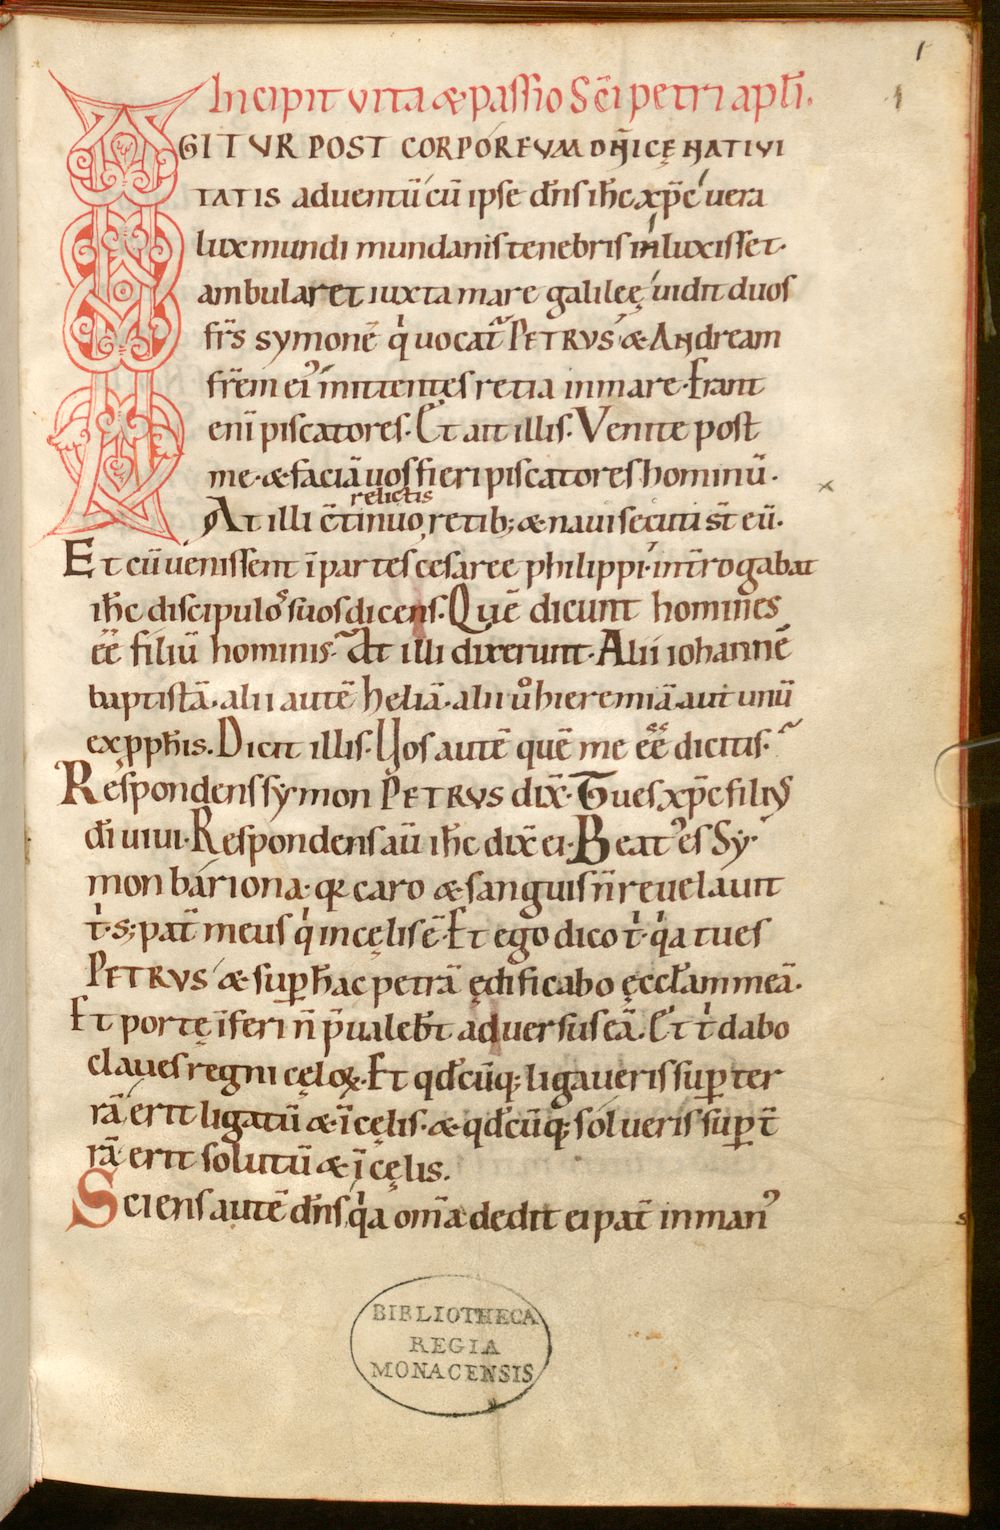 1
1
Incipit vita & passio Sc̄i petri apłi.
IGITUR POST CORPOREUM DN̄ICĘ NATIVI
TATIS adventū cū ipse dn̄s ih̄c xp̄c vera
lux mundi mundanis tenebris inluxisset.
ambularet iuxta mare galileę vidit duos
fr̄s symonē qͥ vocat̄ PETRUS & Andream
fr̄em eiꝰ mittentes retia in mare. Erant
enī piscatores. Et ait illis. Venite post
me. & faciā vos fieri piscatores hominū.
relictis
At illi c̄tinuo retib; & navi secuti st̄ eū.
Et cū venissent ī partes cesaree philippi. int̄rogabat
ih̄c discipulos suos dicens. Quē dicunt homines
eē filiū hominis. At illi dixerunt. Alii iohannē
baptistā. alii autē heliā. alii ůo hieremiā aut unū
ex pph̄is. Dicit illis. Vos autē quē me eē dicitis.
Respondens symon PETRUS dix̄. Tu es xp̄c filiꝰ
dī vivi. Respondens aū ih̄c dix̄ ei. Beatꝰ es Sy
mon bariona. qꝛ caro & sanguis n̄ revelavit
tͥ. s; pat̄ meus qͥ in cęlis ē. Et ego dico tͥ. qͥa tu es
PETRUS & sup̱ hāc petrā ędificabo ęccłam meā.
Et portę īferi n̄ p̄valeb̄t adversus eā. Et tͥ dabo
claves regni cęloꝝ. Et qd̄cūq; ligaveris sup̱ ter
rā erit ligatū & ī cęlis. & qd̄cūq; solveris sup̱ t̄
rā erit solutū & ī cęlis.
Sciens autē dn̄s qͥa om̄a dedit ei pat̄ in manꝰ
BIBLIOTHECA
REGIA
MONACENSIS